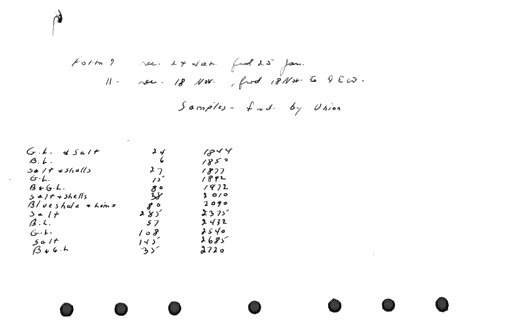 Form 9 rec. 24 Jan. fwd 25 Jan.
11- rec. 18 Nov., fwd 18 Nov. to
Samples - fwd. by Union
G.L. & Salt 24 1844
B.L. 6 1850
Salt & shells 27 1877
G.L. 15 1892
B & G.L. 80 1972
Salt & shells 38 2010
Blue shale & Lime 80 2090
Salt 285 2375
B.L. 57 2432
G.L. 108 2540
Salt 145 2685
B & G.L 35 2720